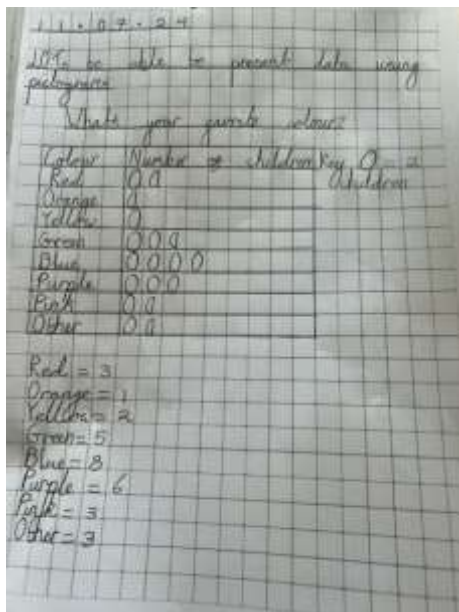 11.07.24
LO: To be able to present data using
pictograms
What's your favourite colour?
Colour Number of children Key O = 2
children
Red
Orange
Yellow
Green
Blue
Purple
Pink
Other
Red = 3
Orange = 1
Yellow = 2
Green = 5
Blue = 8
Purple = 6
Pink = 3
Other = 3